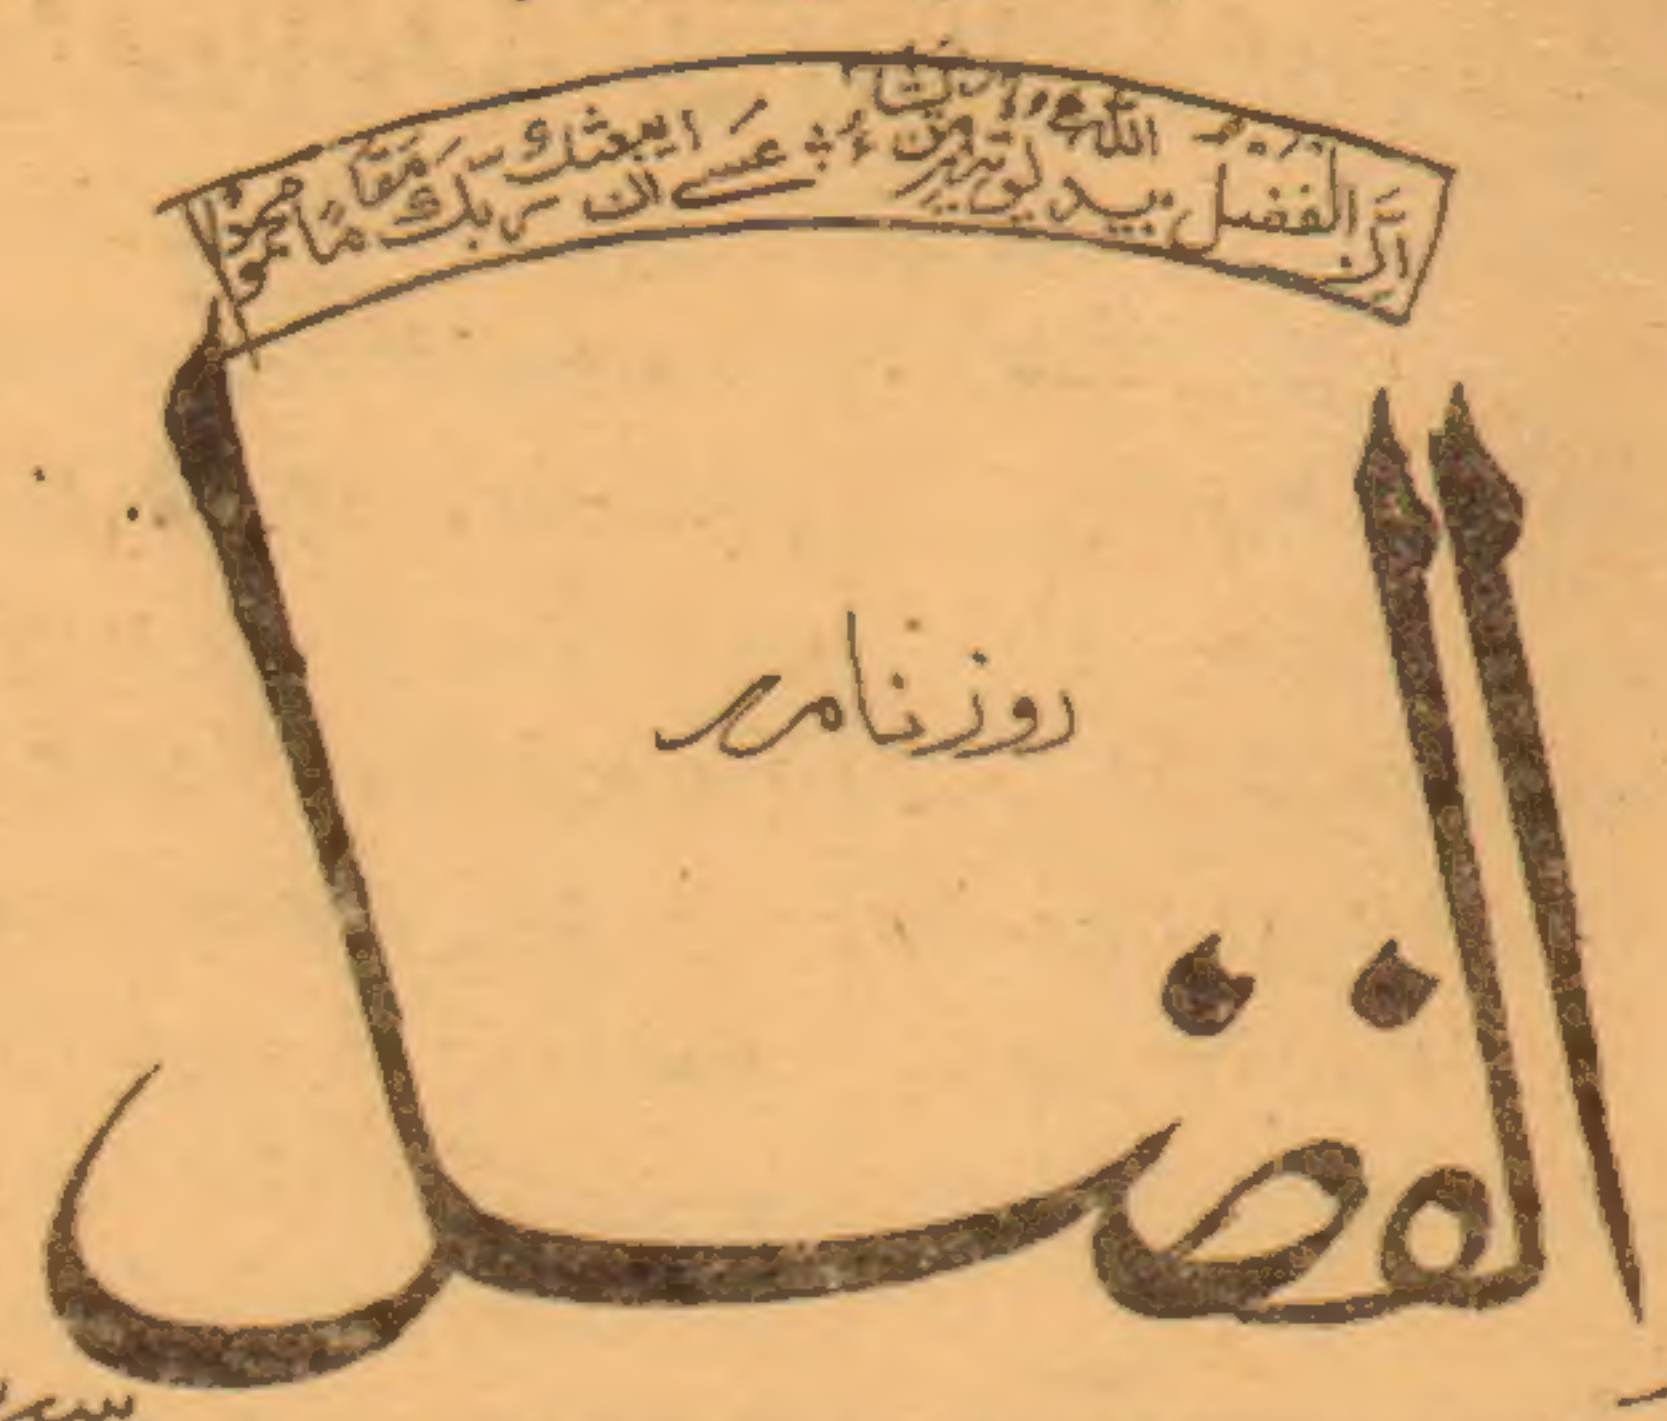 اِنَّ الْفَضْلَ بِیَدِ اللّٰهِ یُؤْتِیْهِ مَنْ یَّشَآءُ ؛ عَسٰے اَنْ یَّبْعَثَكَ رَبُّكَ مَقَامًا مَّحْمُوْدًا
روزنامہ
الفضل